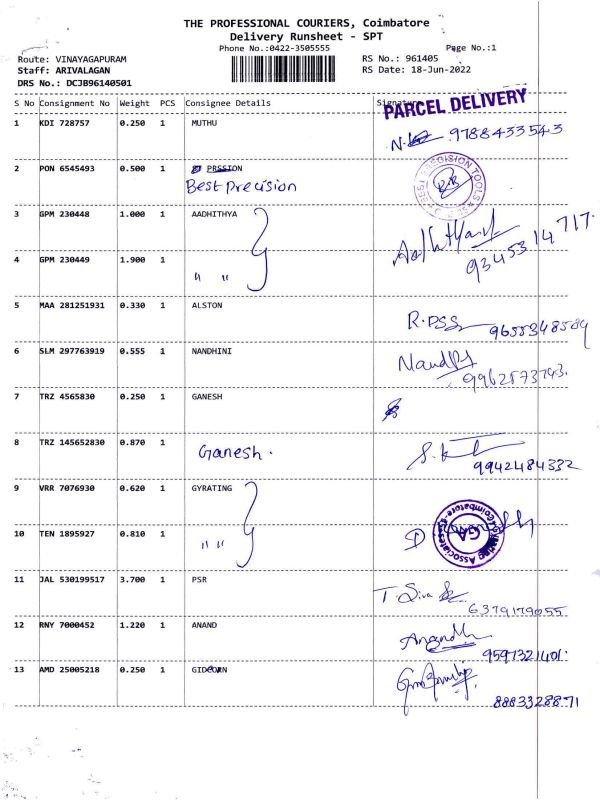 THE PROFESSIONAL COURIERS, Coimbatore
Delivery Runsheet - SPT
Phone No.:0422-3505555 Page No.:1
Route: VINAYAGAPURAM RS No.: 961405
Staff: ARIVALAGAN RS Date: 18-Jun-2022
DRS No.: DCJB96140501
S No Consignment No Weight PCS Consignee Details Signature
PARCEL DELIVERY
1 KDI 728757 0.250 1 MUTHU
9788433543
2 PON 6545493 0.500 1 PRSSION
Best Precision
BEST PRECISION TOOLS
3 GPM 230448 1.000 1 AADHITHYA
9345314717.
4 GPM 230449 1.900 1
" "
5 MAA 281251931 0.330 1 ALSTON
R.PSS 9655348584
6 SLM 297763919 0.555 1 NANDHINI
9962873743.
7 TRZ 4565830 0.250 1 GANESH
8 TRZ 145652830 0.870 1 Ganesh.
9942484332
9 VRR 7076930 0.620 1 GYRATING
10 TEN 1895927 0.810 1
" "
GA
11 JAL 530199517 3.700 1 PSR
T Siva
6379179055
12 RNY 7000452 1.220 1 ANAND
9597321401.
13 AMD 25005218 0.250 1 GIDEON
8883328871